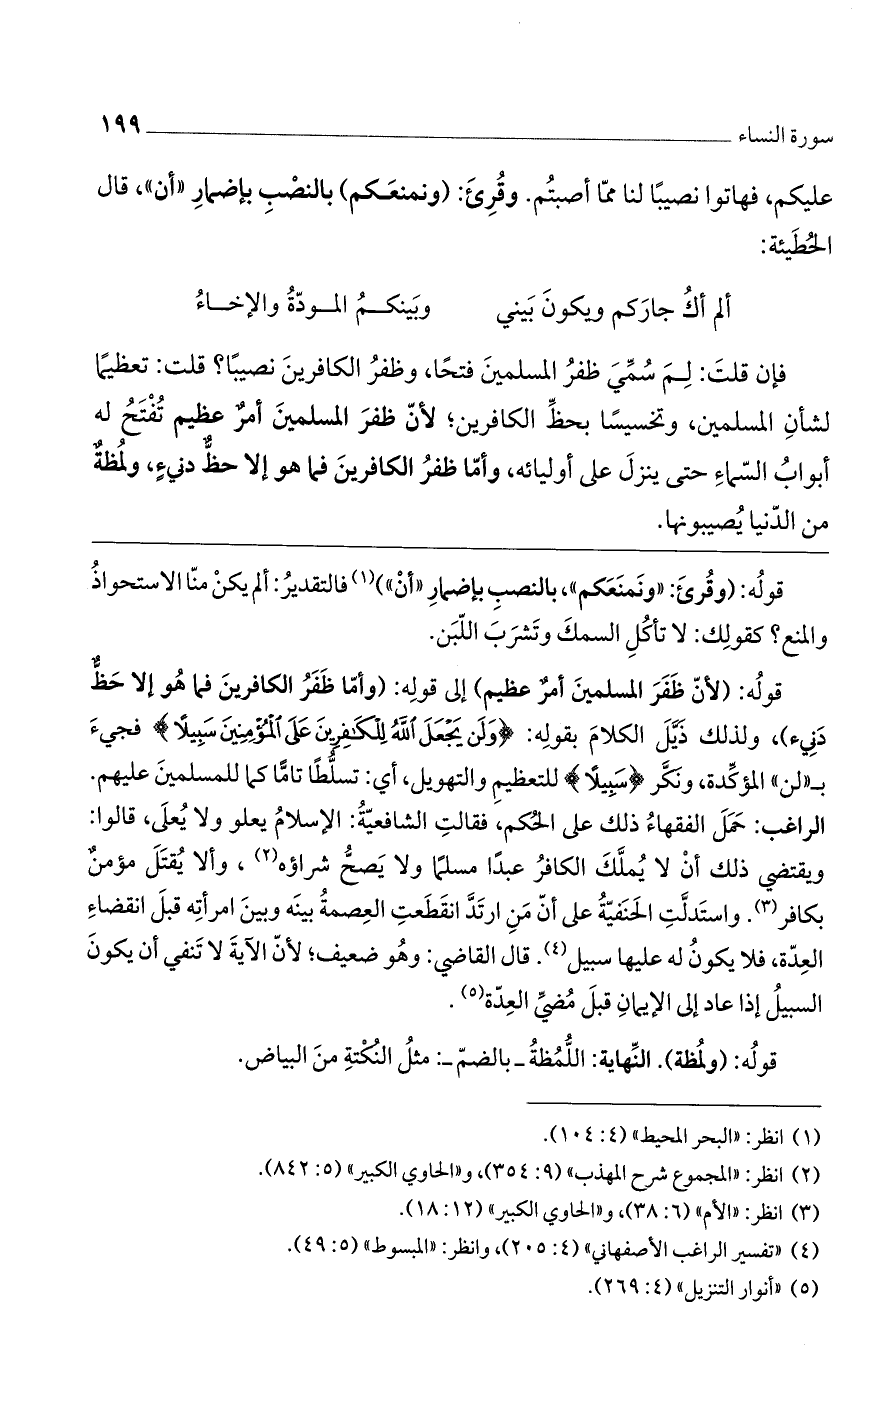 سورة النساء ١٩٩
عليكم، فهاتوا نصيبًا لنا ممّا أصبتُم. وقُرِئَ: (ونمنعَكم) بالنصْبِ بإضمارِ «أن»، قال
الحُطَيئة:
ألم أكُ جارَكم ويكونَ بَيني وبَينكمُ المودّةُ والإخاءُ
فإن قلتَ: لِمَ سُمِّيَ ظفرُ المسلمينَ فتحًا، وظفرُ الكافرينَ نصيبًا؟ قلت: تعظيمًا
لشأنِ المسلمين، وتخسيسًا بحظِّ الكافرين؛ لأنّ ظفرَ المسلمينَ أمرٌ عظيم تُفْتَحُ له
أبوابُ السّماءِ حتى ينزلَ على أوليائه، وأمّا ظفرُ الكافرينَ فما هو إلا حظٌّ دنيءٍ، ولُمظةٌ
من الدّنيا يُصيبونها.
قولُه: (وقُرئَ: «ونَمنَعَكم»، بالنصبِ بإضمارِ «أنْ»)(١) فالتقديرُ: ألم يكنْ منّا الاستحواذُ
والمنع؟ كقولِك: لا تأكُلِ السمكَ وتَشرَبَ اللّبَن.
قولُه: (لأنّ ظَفَرَ المسلمينَ أمرٌ عظيم) إلى قولِه: (وأمّا ظَفَرُ الكافرينَ فما هُو إلا حَظٌّ
دَنِيء)، ولذلك ذَيَّلَ الكلامَ بقولِه: ﴿وَلَن يَجْعَلَ ٱللَّهُ لِلْكَٰفِرِينَ عَلَى ٱلْمُؤْمِنِينَ سَبِيلًا﴾ فجيءَ
بـ«لن» المؤكِّدة، ونَكَّر ﴿سَبِيلًا﴾ للتعظيمِ والتهويل، أي: تسلُّطًا تامًّا كما للمسلمينَ عليهم.
الراغب: حَمَلَ الفقهاءُ ذلك على الحُكم، فقالتِ الشافعيّةُ: الإسلامُ يعلو ولا يُعلَى، قالوا:
ويقتضي ذلك أنْ لا يُملَّكَ الكافرُ عبدًا مسلمًا ولا يَصحُّ شراؤه(٢)، وألا يُقتَلَ مؤمنٌ
بكافر(٣). واستَدلَّتِ الحَنَفيّةُ على أنّ مَنِ ارتَدَّ انقَطَعتِ العِصمةُ بينَه وبينَ امرأتِه قبلَ انقضاءِ
العِدّة، فلا يكونُ له عليها سبيل(٤). قال القاضي: وهُو ضعيف؛ لأنّ الآيةَ لا تَنفي أن يكونَ
السبيلُ إذا عاد إلى الإيمانِ قبلَ مُضيِّ العِدّة(٥).
قولُه: (ولُمظة). النِّهاية: اللُّمظةُ ـ بالضمّ ـ: مثلُ النُكْتةِ منَ البياض.
(١) انظر: «البحر المحيط» (٤: ١٠٤).
(٢) انظر: «المجموع شرح المهذب» (٩: ٣٥٤)، و«الحاوي الكبير» (٥: ٨٤٢).
(٣) انظر: «الأم» (٦: ٣٨)، و«الحاوي الكبير» (١٢: ١٨).
(٤) «تفسير الراغب الأصفهاني» (٤: ٢٠٥)، وانظر: «المبسوط» (٥: ٤٩).
(٥) «أنوار التنزيل» (٤: ٢٦٩).